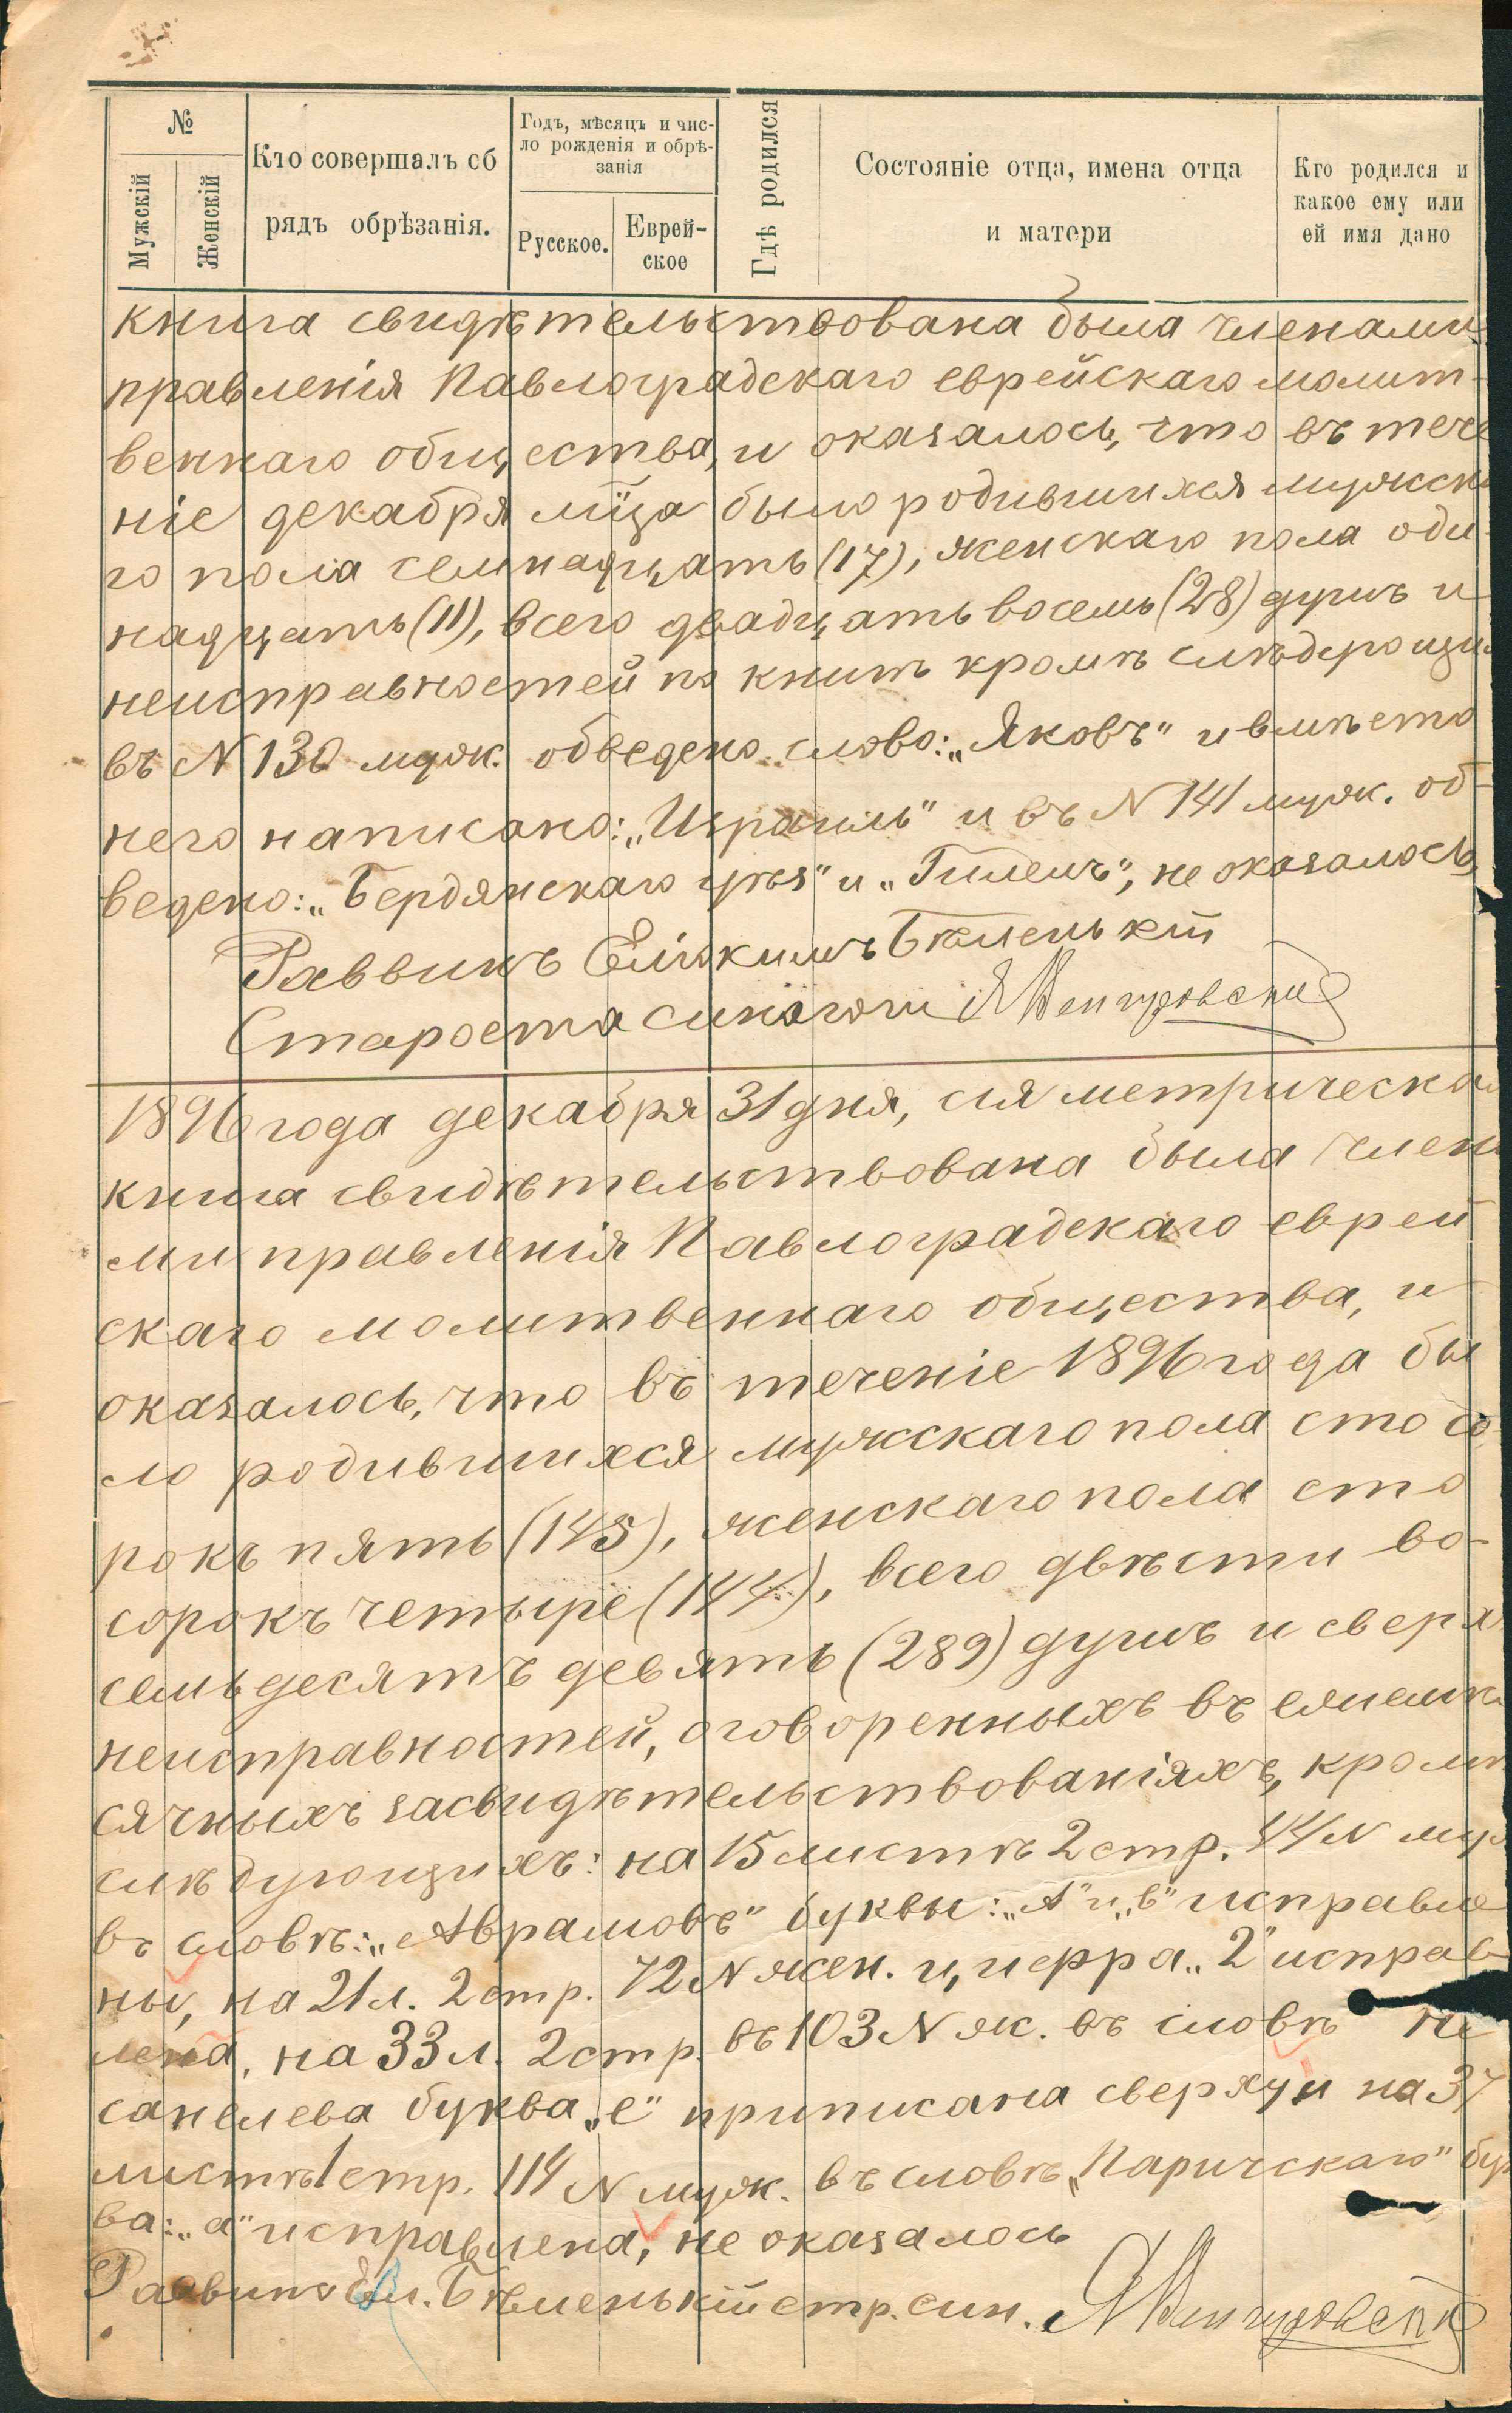 №
Мужскій
Женскій
Кто совершалъ об
рядъ обрѣзанія.
Годъ, мѣсяцъ и чис-
ло рожденія и обрѣ-
занія
Русское.
Еврей-
ское
Гдѣ родился
Состояніе отца, имена отца
и матери
Кто родился и
какое ему или
ей имя дано
книга свидѣтельствована была членами
правленія Павлоградскаго еврейскаго молит-
веннаго общества, и оказалось, что въ тече
ніе декабря мѣца было родившихся мужска
го пола семнадцать (17), женскаго пола оди-
надцать (11), всего двадцать восемь (28) душъ и
неисправностей по книгѣ кромѣ слѣдующи
въ N 130 муж. обведено слово: „Яковъ" и вмѣсто
него написано: „Израиль" и въ N 141 муж. об-
ведено: „Бердянскаго уѣз" и „Гилелъ", не оказалось
Раввинъ Еліокимъ Бѣленькій
Староста синагоги
1896 года декабря 31 дня, сія метрическа
книга свидѣтельствована была член
ми правленія Павлоградскаго еврей
скаго молитвеннаго общества, и
оказалось, что въ теченіе 1896 года бы
ло родившихся мужскаго пола сто со
рокъ пять (145), женскаго пола сто
сорокъ четыре (144), всего двѣсти во-
семьдесятъ девять (289) душъ и сверх
неисправностей, оговоренныхъ въ ежемѣ
сячныхъ засвидѣтельствованіяхъ, кромѣ
слѣдующихъ: на 15 листѣ 2 стр. 44 N муж
въ словѣ: „Аврамовъ" буквы: „А" и „в" исправле
ны, на 21 л. 2 стр. 72 N жен. цифра „2" исправ-
лена, на 33 л. 2 стр. въ 103 N ж. въ словѣ Не
санелева буква „е" приписана сверху и на 37
листѣ 1 стр. 114 N муж. въ словѣ „Паричскаго" бук
ва: „а" исправлена, не оказалось
Раввинъ Ел. Бѣленькій стр. син.